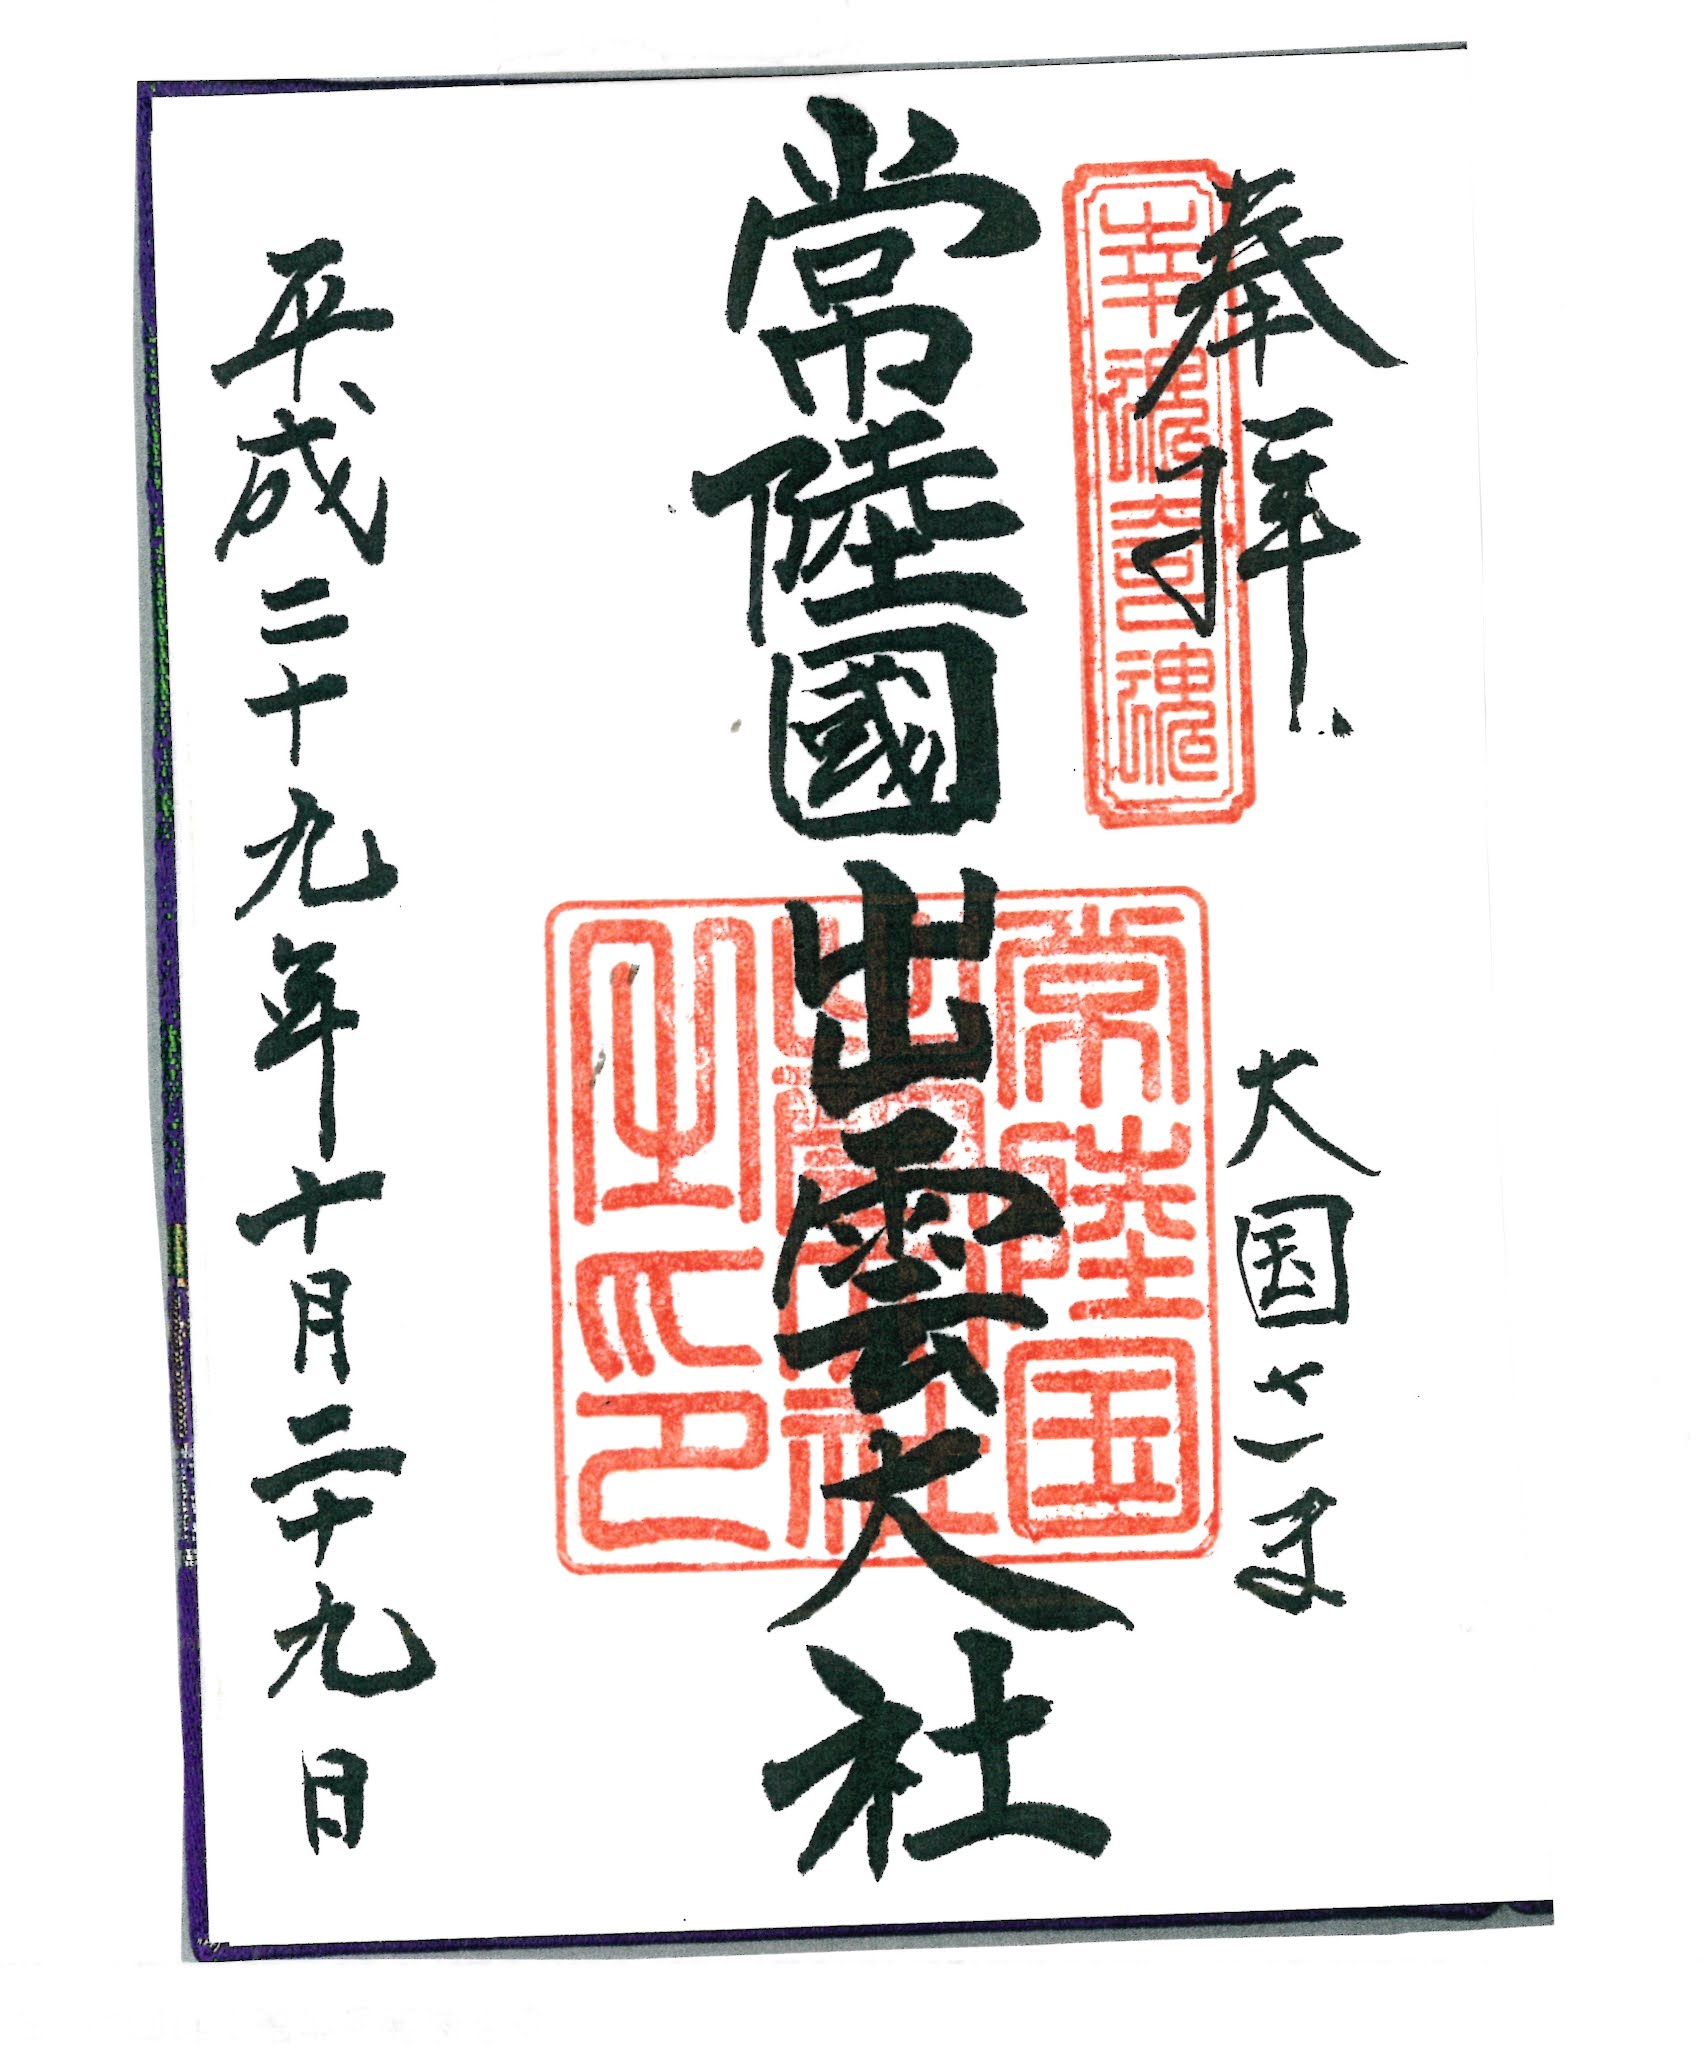 奉拝
大国さま
幸魂奇魂
常陸國出雲大社
常陸国
出雲大社
之印
平成二十九年十月二十九日